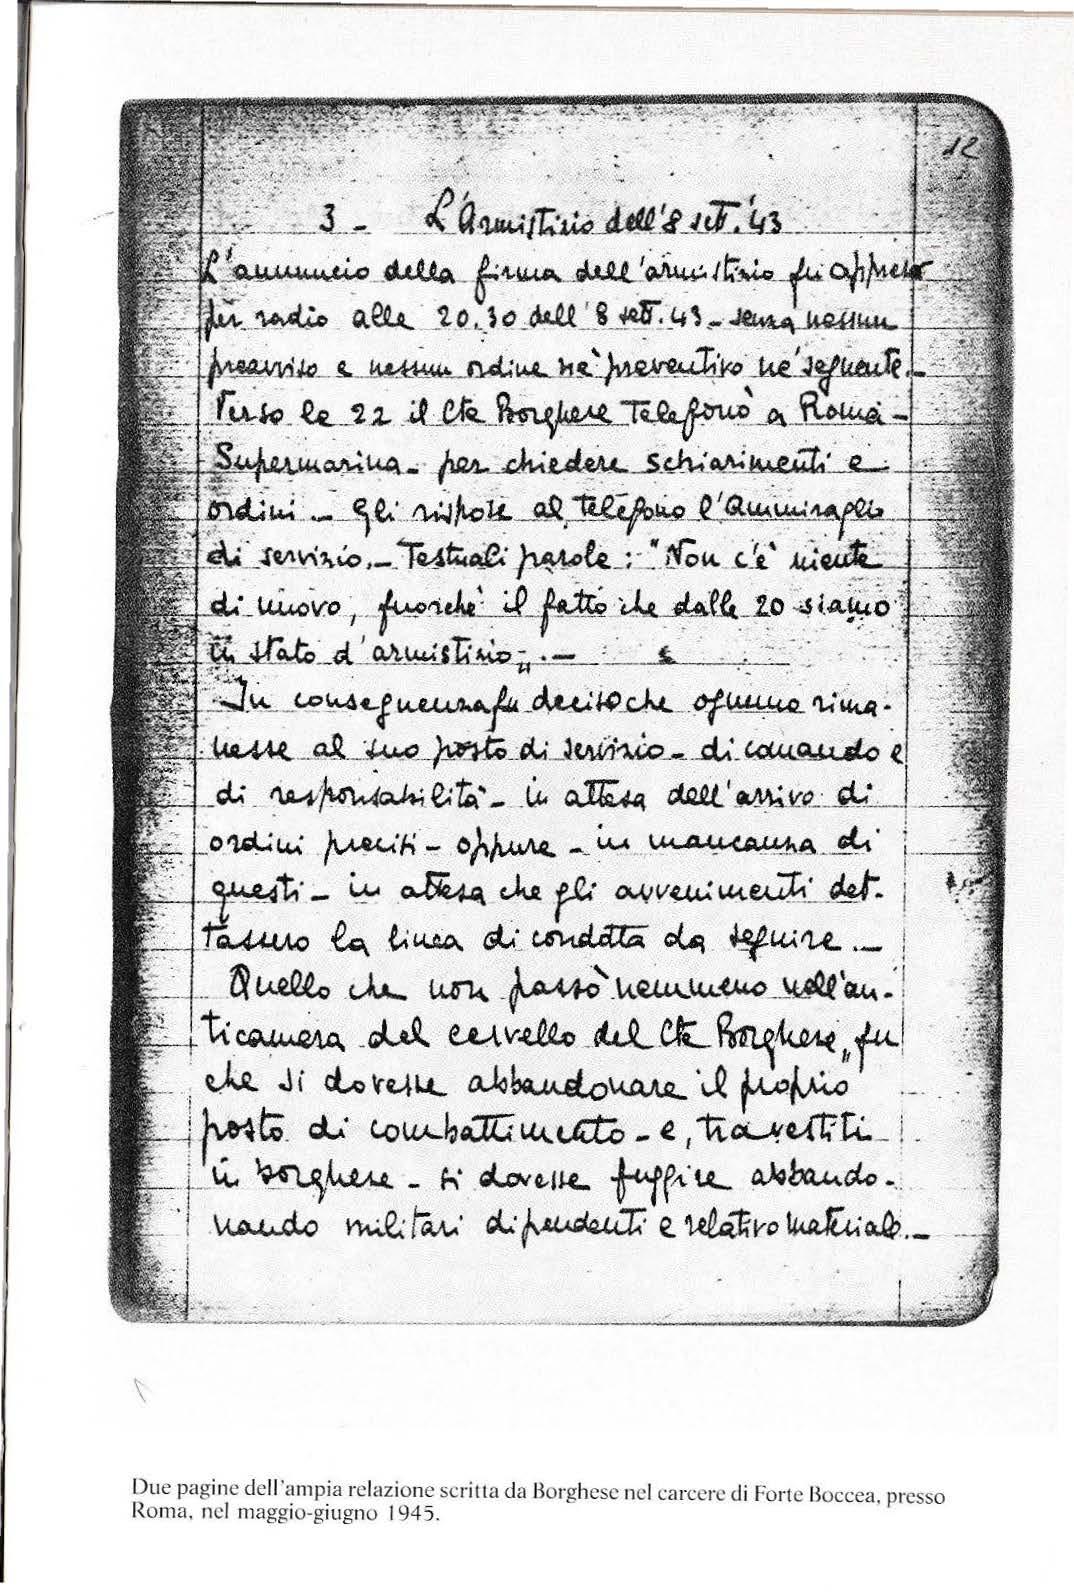 12
3 - L'Armistizio dell'8 sett. '43
L'annuncio della firma dell'armistizio fu appreso
per radio alle 20.30 dell'8 sett. 43 - senza nessun
preavviso e nessun ordine nè preventivo nè seguente. -
Verso le 22 il Cte Borghese telefonò a Roma -
Supermarina - per chiedere schiarimenti e
ordini - Gli rispose al telefono l'Ammiraglio
di servizio. - Testuali parole: "Non c'è niente
di nuovo, fuorchè il fatto che dalle 20 siamo
in stato d'armistizio„. -
In conseguenza fu deciso che ognuno rima-
nesse al suo posto di servizio - di comando e
di responsabilità - in attesa dell'arrivo di
ordini precisi - oppure - in mancanza di
questi - in attesa che gli avvenimenti det-
tassero la linea di condotta da seguire. -
Quello che non passò nemmeno nell'an-
ticamera del cervello del Cte Borghese„ fu
che si dovesse abbandonare il proprio
posto di combattimento - e, travestiti
in borghese - si dovesse fuggire abbando-
nando militari dipendenti e relativo materiale. -
Due pagine dell'ampia relazione scritta da Borghese nel carcere di Forte Boccea, presso
Roma, nel maggio-giugno 1945.